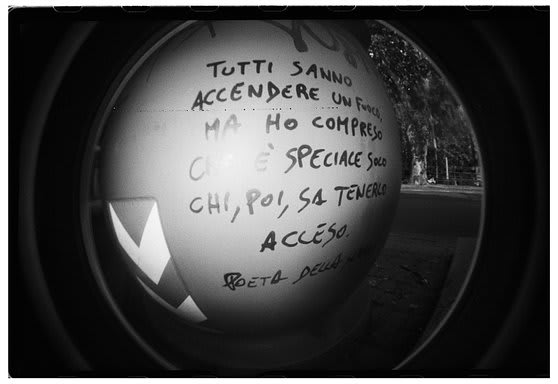 TUTTI SANNO
ACCENDERE UN FUOCO,
MA HO COMPRESO
CHE È SPECIALE SOLO
CHI, POI, SA TENERLO
ACCESO.
POETA DELLA